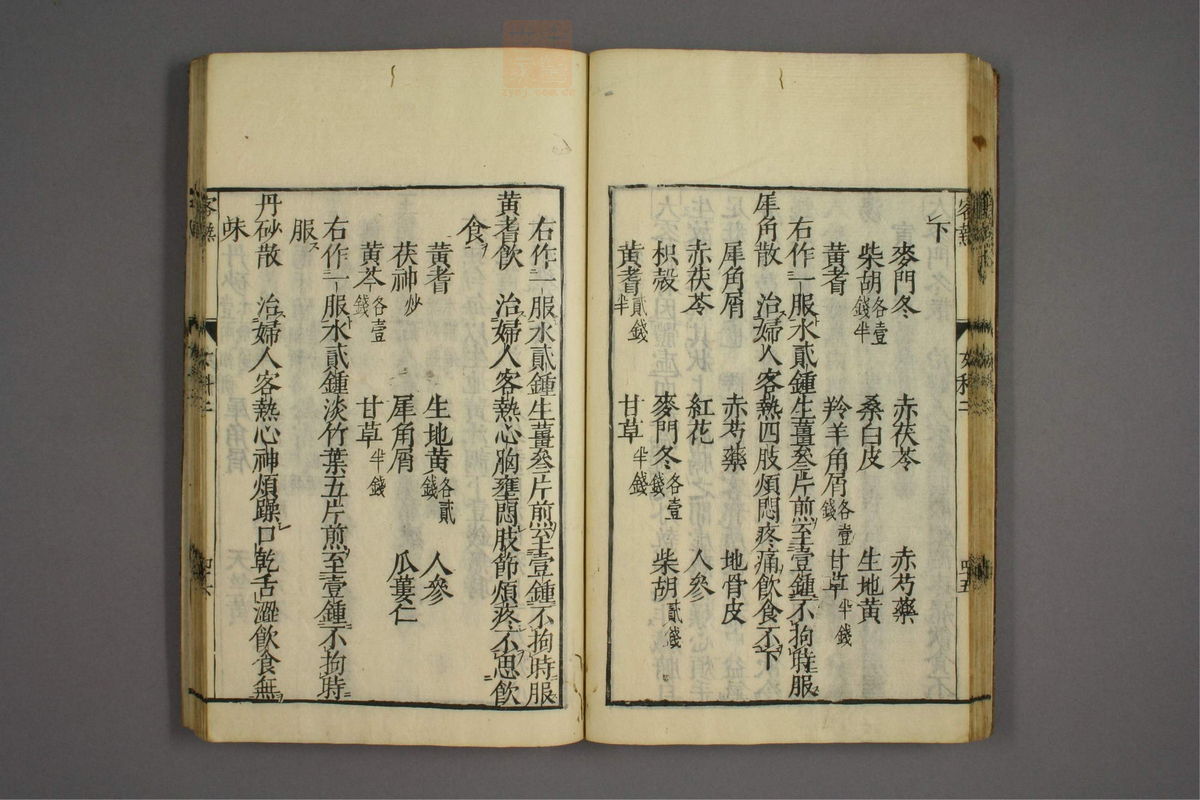 下
麥門冬 赤茯苓 赤芍藥
柴胡各壹錢半 桑白皮 生地黃
黃耆 羚羊角屑各壹錢 甘草半錢
右作一服水貳鍾生薑叄片煎至壹鍾不拘時服
犀角散 治婦人客熱四肢煩悶疼痛飲食不下
犀角屑 赤芍藥 地骨皮
赤茯苓 紅花 人參
枳殼貳錢 麥門冬各壹錢 柴胡貳錢
黃耆半 甘草半錢
右作一服水貳鍾生薑叄片煎至壹鍾不拘時服
黃耆飲 治婦人客熱心胸壅悶肢節煩疼不思飲
食
黃耆 生地黃各貳錢 人參
茯神炒 犀角屑 瓜蔞仁
黃芩各壹錢 甘草半錢
右作一服水貳鍾淡竹葉五片煎至壹鍾不拘時
服
丹砂散 治婦人客熱心神煩躁口乾舌澀飲食無
味